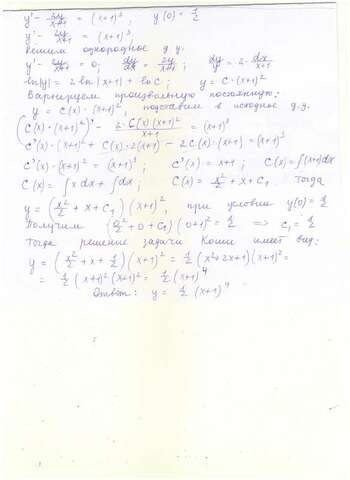 y' - 2y/(x+1) = (x+1)³, y(0) = 1/2
y' - 2y/(x+1) = (x+1)³;
Решим однородное д.у.
y' - 2y/(x+1) = 0; dy/dx = 2y/(x+1); dy/y = 2·dx/(x+1)
ln|y| = 2 ln|x+1| + ln C; y = C·(x+1)²
Варьируем произвольную постоянную:
y = C(x)·(x+1)², подставим в исходное д.у.
(C(x)·(x+1)²)' - 2·C(x)(x+1)²/(x+1) = (x+1)³
C'(x)·(x+1)² + C(x)·2(x+1) - 2C(x)·(x+1) = (x+1)³
C'(x)·(x+1)² = (x+1)³; C'(x) = x+1; C(x) = ∫(x+1)dx
C(x) = ∫x dx + ∫dx; C(x) = x²/2 + x + C₁. Тогда
y = (x²/2 + x + C₁)(x+1)², при условии y(0) = 1/2
Получим (0²/2 + 0 + C₁)(0+1)² = 1/2 => C₁ = 1/2
Тогда решение задачи Коши имеет вид:
y = (x²/2 + x + 1/2)(x+1)² = 1/2 (x²+2x+1)(x+1)² =
= 1/2 (x+1)²(x+1)² = 1/2 (x+1)⁴
Ответ: y = 1/2 (x+1)⁴